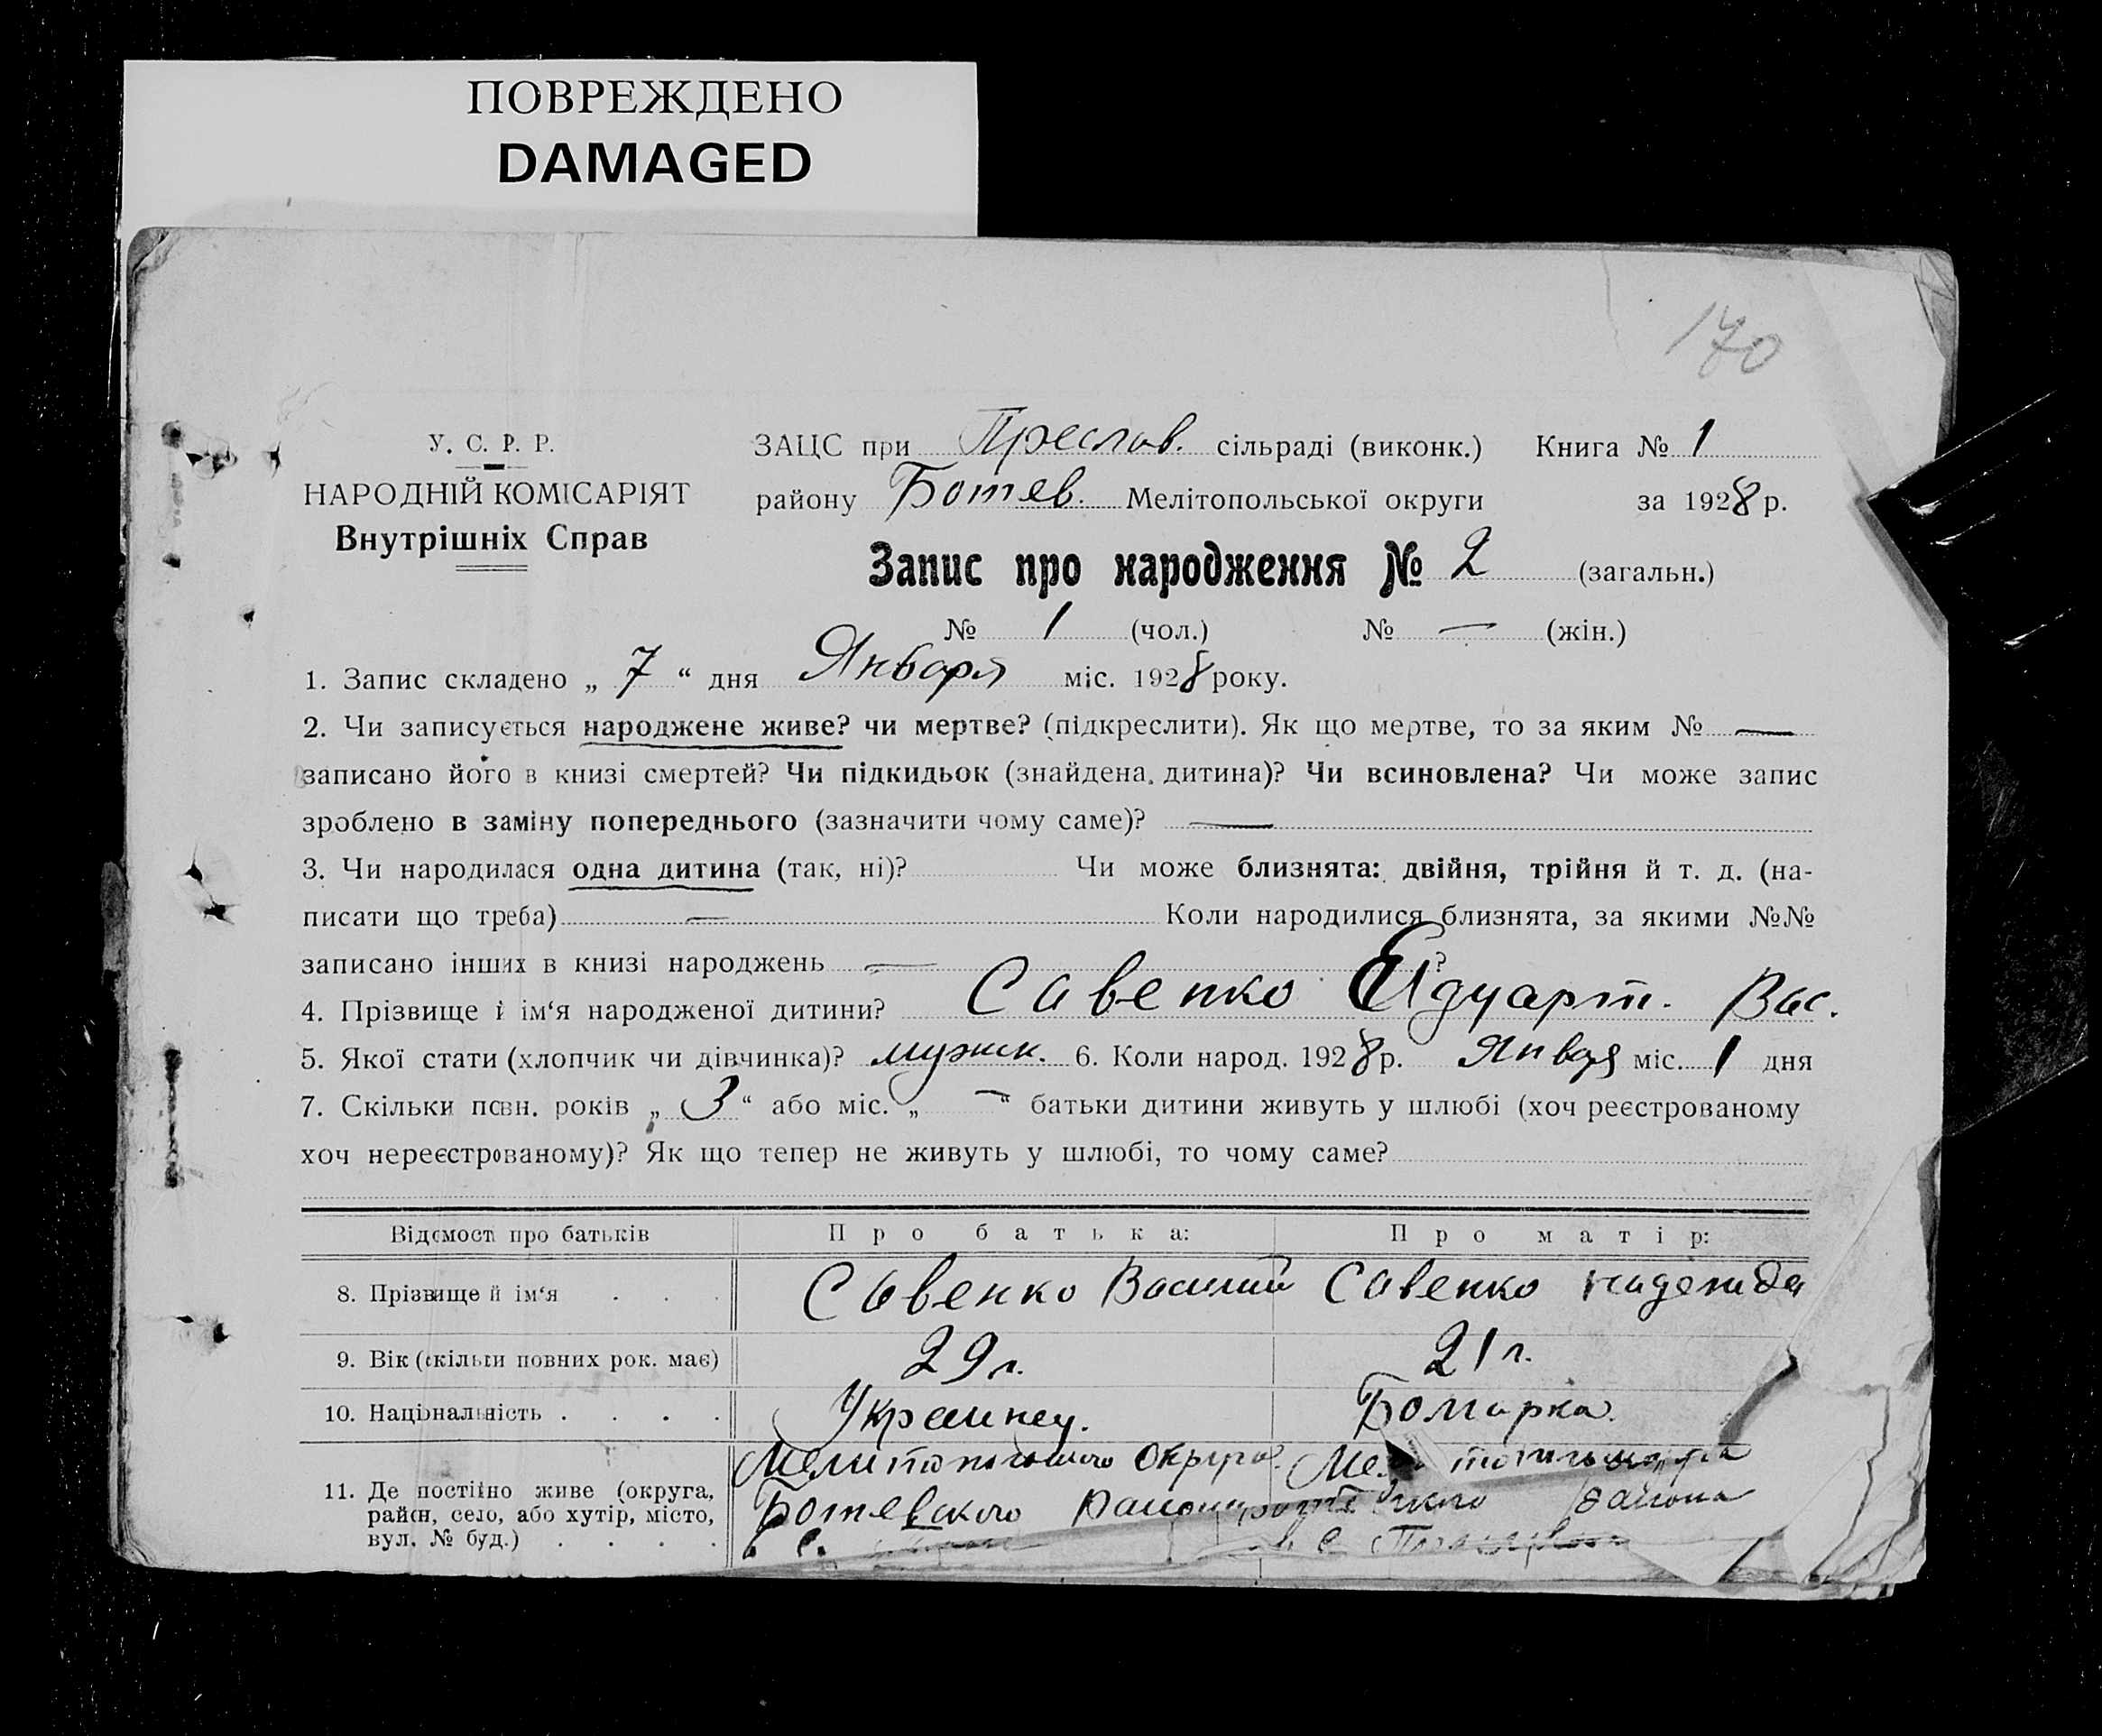 ПОВРЕЖДЕНО
DAMAGED
170
У. С. Р. Р.
НАРОДНІЙ КОМІСАРІЯТ
Внутрішніх Справ
ЗАЦС при Преслав. сільраді (виконк.) Книга № 1
району Ботев. Мелітопольської округи за 1928 р.
Запис про народження № 2 (загальн.)
№ 1 (чол.) № — (жін.)
1. Запис складено „ 7 “ дня Января міс. 1928 року.
2. Чи записується народжене живе? чи мертве? (підкреслити). Як що мертве, то за яким № —
записано його в книзі смертей? Чи підкидьок (знайдена дитина)? Чи всиновлена? Чи може запис
зроблено в заміну попереднього (зазначити чому саме)? —
3. Чи народилася одна дитина (так, ні)? Чи може близнята: двійня, трійня й т. д. (на-
писати що треба) — Коли народилися близнята, за якими №№
записано інших в книзі народжень — ?
4. Прізвище й ім‘я народженої дитини? Савенко Едуарт. Вас.
5. Якої стати (хлопчик чи дівчинка)? мужск. 6. Коли народ. 1928 р. Января міс. 1 дня
7. Скільки повн. років „ 3 “ або міс. „ — “ батьки дитини живуть у шлюбі (хоч реєстрованому
хоч нереєстрованому)? Як що тепер не живуть у шлюбі, то чому саме?
Відомости про батьків Про батька: Про матір:
8. Прізвище й ім‘я . . . Савенко Василий Савенко Надежда
9. Вік (скільки повних рок. має) 29 г. 21 г.
10. Національність . . . . Украинец. Болгарка.
11. Де постійно живе (округа, Мелитопольского Округа.
район, село, або хутір, місто, Ботевского Района района
вул. № буд.) . . . . с. с